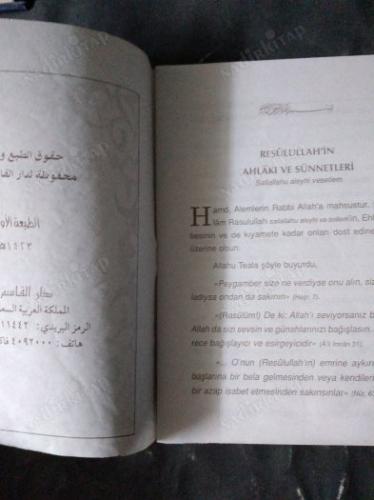 حقوق الطبع و
محفوظة لدار القا
الطبعة الأو
١٤٢٣
دار القاسم
المملكة العربية السعو
الرمز البريدي: ١١٤٤٢
هاتف: ٤٠٩٢٠٠٠ فاك
RESÛLULLAH'IN
AHLÂKI VE SÜNNETLERİ
Sallallahu aleyhi vesellem
Hamd, Alemlerin Rabbi Allah'a mahsustur.
lâm Rasulullah sallallahu aleyhi ve sellem'in, Ehl
beytinin ve de kıyamete kadar onları dost edine
üzerine olsun.
Allahu Teala şöyle buyurdu,
«Peygamber size ne verdiyse onu alın, siz
ladıysa ondan da sakının» (Haşr, 7).
«(Resûlüm!) De ki: Allah'ı seviyorsanız b
Allah da sizi sevsin ve günahlarınızı bağışlasın.
rece bağışlayıcı ve esirgeyicidir» (Âl-i İmrân 31).
«... O'nun (Resûlullah'ın) emrine aykırı
başlarına bir bela gelmesinden veya kendileri
bir azap isabet etmesinden sakınsınlar» (Nûr, 6